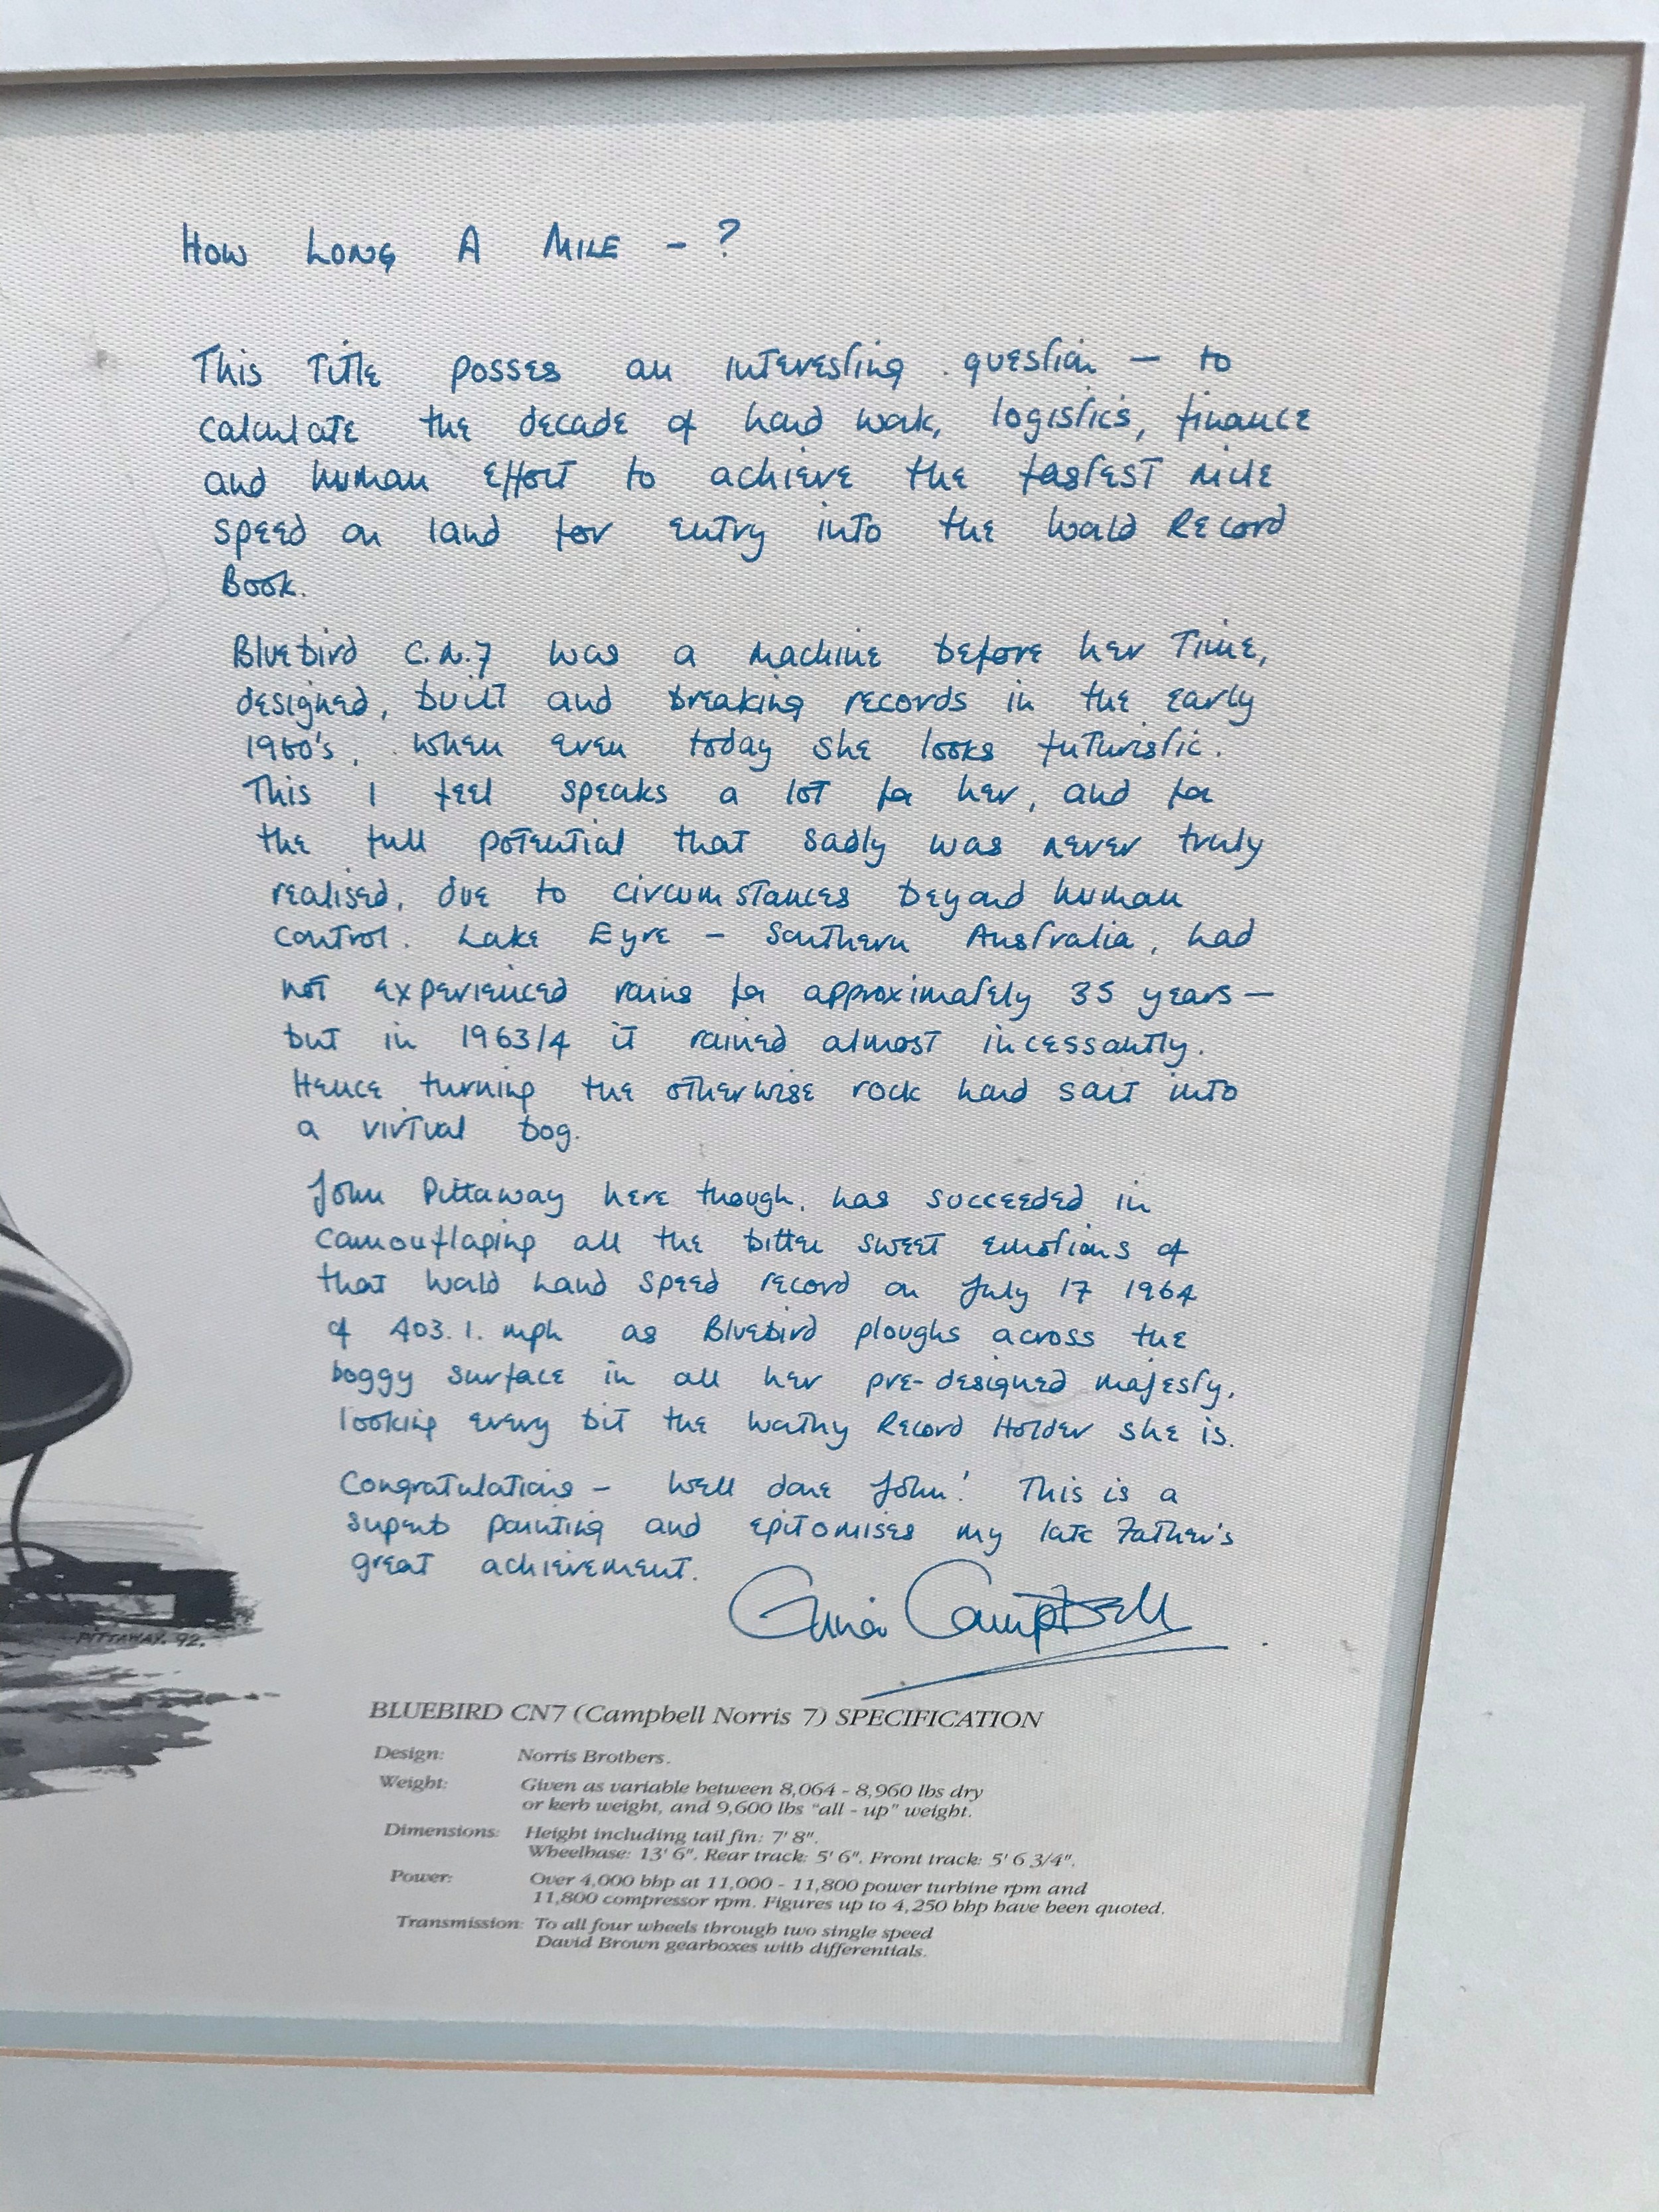 How Long A Mile - ?
This Title posses an interesting question — to
calculate the decade of hard work, logistics, finance
and human effort to achieve the fastest mile
speed on land for entry into the World Record
Book.
Bluebird C.N.7 was a machine before her Time,
designed, built and breaking records in the early
1960's, when even today she looks futuristic.
This I feel speaks a lot for her, and for
the full potential that sadly was never truly
realised, due to circumstances beyond human
control. Lake Eyre - Southern Australia, had
not experienced rains for approximately 35 years—
but in 1963/4 it rained almost incessantly.
Hence turning the otherwise rock hard salt into
a virtual bog.
John Pittaway here though, has succeeded in
camouflaging all the bitter sweet emotions of
that World Land Speed record on July 17 1964
of 403.1. mph as Bluebird ploughs across the
boggy surface in all her pre-designed majesty,
looking every bit the worthy Record Holder she is.
Congratulations - Well done John! This is a
superb painting and epitomises my late Father's
great achievement.
Gina Campbell
PITTAWAY. 92.
BLUEBIRD CN7 (Campbell Norris 7) SPECIFICATION
Design: Norris Brothers.
Weight: Given as variable between 8,064 - 8,960 lbs dry
or kerb weight, and 9,600 lbs "all - up" weight.
Dimensions: Height including tail fin: 7' 8".
Wheelbase: 13' 6". Rear track: 5' 6". Front track: 5' 6 3/4".
Power: Over 4,000 bhp at 11,000 - 11,800 power turbine rpm and
11,800 compressor rpm. Figures up to 4,250 bhp have been quoted.
Transmission: To all four wheels through two single speed
David Brown gearboxes with differentials.